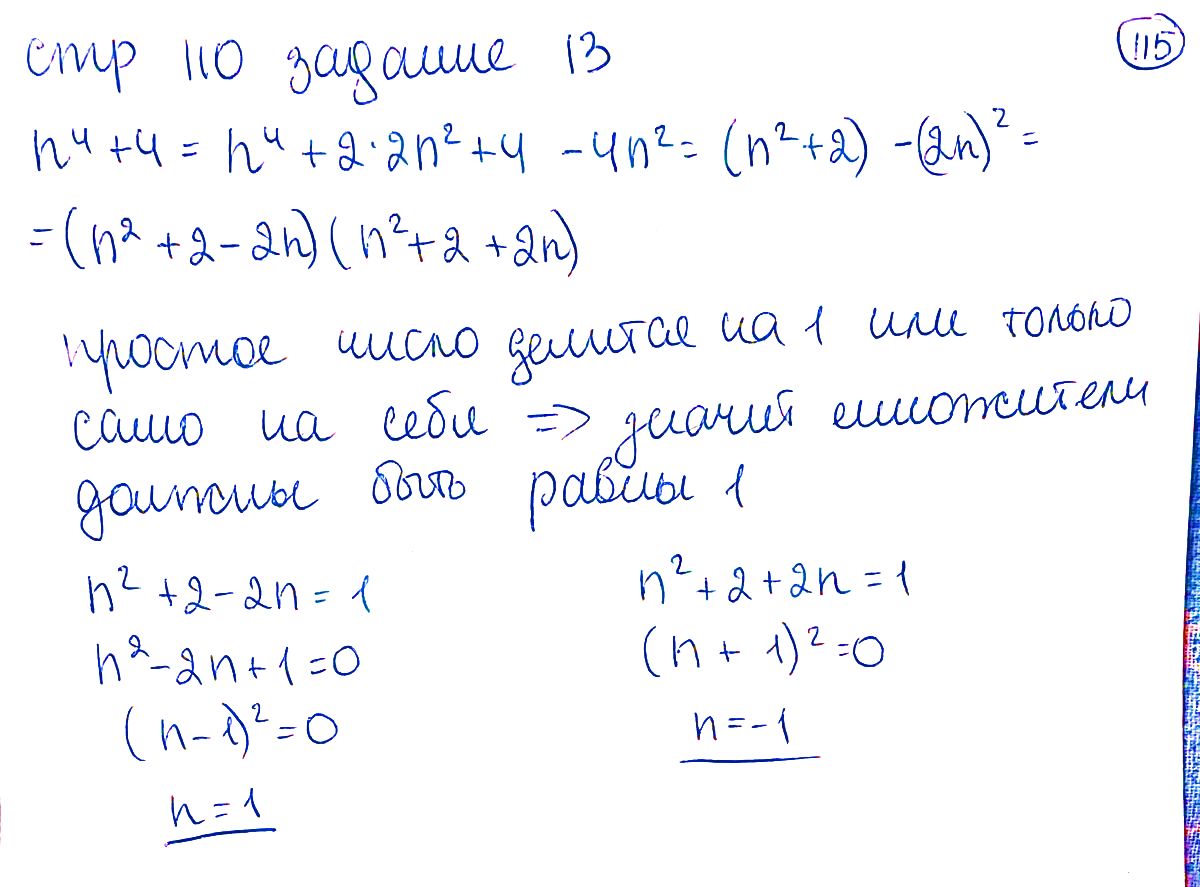 стр 110 задание 13
115
n⁴ + 4 = n⁴ + 2·2n² + 4 - 4n² = (n² + 2) - (2n)² =
= (n² + 2 - 2n)(n² + 2 + 2n)
простое число делится на 1 или только
само на себя => значит множители
должны быть равны 1
n² + 2 - 2n = 1
n² - 2n + 1 = 0
(n - 1)² = 0
n = 1
n² + 2 + 2n = 1
(n + 1)² = 0
n = -1